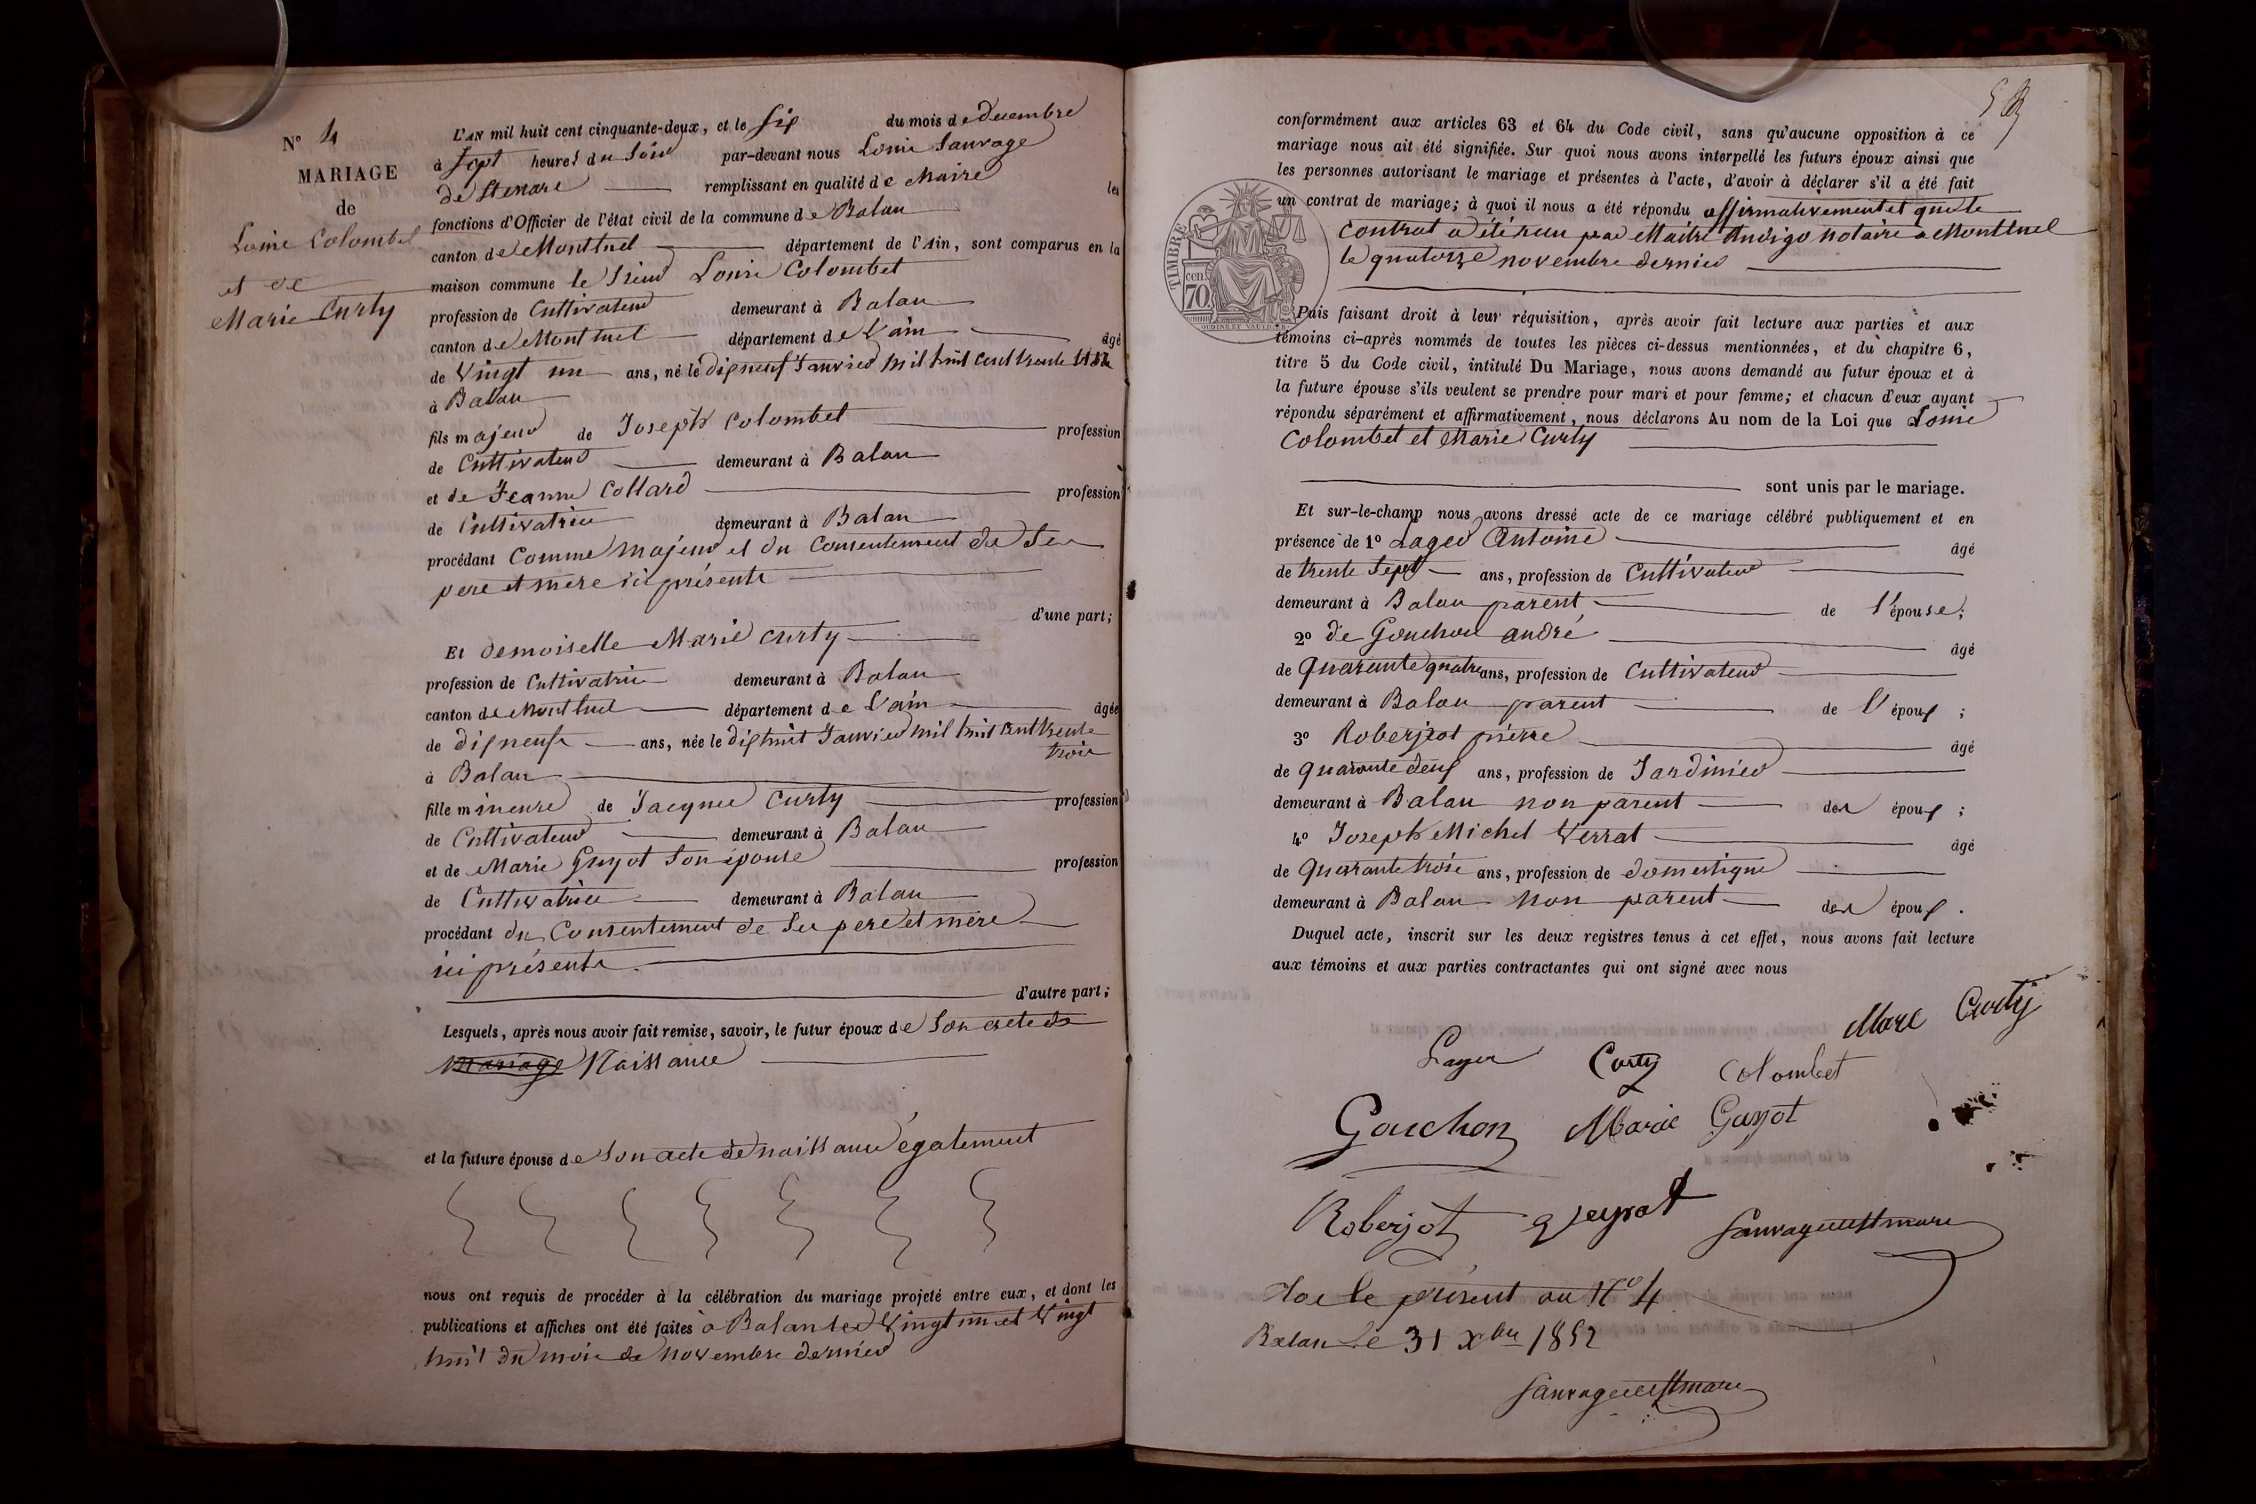 N° 4
MARIAGE
de
Louis Colombet
et de
Marie Curty
L'AN mil huit cent cinquante-deux, et le six du mois de decembre
à sept heures du soir par-devant nous Louis Sauvage
de St mare remplissant en qualité de Maire les
fonctions d'Officier de l'état civil de la commune de Balan
canton de Montluel département de l'Ain, sont comparus en la
maison commune le sieur Louis Colombet
profession de Cultivateur demeurant à Balan
canton de Montluel département de L'ain âgé
de vingt un ans, né le dixneuf Janvier mil huit cent trente
à Balan
fils majeur de Joseph Colombet profession
de Cultivateur demeurant à Balan
et de Jeanne Collard profession
de Cultivatrice demeurant à Balan
procédant Comme majeur et du Consentement de Ses
pere et mère ici présents
d'une part;
Et demoiselle Marie Curty
profession de Cultivatrice demeurant à Balan
canton de Montluel département de L'ain âgée
de dixneuf ans, née le dixhuit Janvier mil huit cent trente
trois
à Balan
fille mineure de Jacques Curty profession
de Cultivateur demeurant à Balan
et de Marie Guyot Son épouse profession
de Cultivatrice demeurant à Balan
procédant du Consentement de Ses pere et mère
ici présents.
d'autre part;
Lesquels, après nous avoir fait remise, savoir, le futur époux de Son acte de
mariage Naissance
et la future épouse de Son acte de naissance également
nous ont requis de procéder à la célébration du mariage projeté entre eux, et dont les
publications et affiches ont été faites à Balan les Vingt un et Vingt
huit du mois de novembre dernier
conformément aux articles 63 et 64 du Code civil, sans qu'aucune opposition à ce
mariage nous ait été signifiée. Sur quoi nous avons interpellé les futurs époux ainsi que
les personnes autorisant le mariage et présentes à l'acte, d'avoir à déclarer s'il a été fait
un contrat de mariage; à quoi il nous a été répondu affirmativement et que le
contrat a été reçu par Maitre Andigo notaire a Montluel
le quatorze novembre dernier
TIMBRE
cen.
70
OUDINÉ ET VAUTHIER
Puis faisant droit à leur réquisition, après avoir fait lecture aux parties et aux
témoins ci-après nommés de toutes les pièces ci-dessus mentionnées, et du chapitre 6,
titre 5 du Code civil, intitulé Du Mariage, nous avons demandé au futur époux et à
la future épouse s'ils veulent se prendre pour mari et pour femme; et chacun d'eux ayant
répondu séparément et affirmativement, nous déclarons Au nom de la Loi que Louis
Colombet et Marie Curty
sont unis par le mariage.
Et sur-le-champ nous avons dressé acte de ce mariage célébré publiquement et en
présence de 1° Lager Antoine âgé
de trente sept ans, profession de Cultivateur
demeurant à Balan parent de l'épouse;
2° de Gouchon andré âgé
de Quarante quatre ans, profession de Cultivateur
demeurant à Balan parent de l'époux;
3° Roberjeot pierre âgé
de quarante deux ans, profession de Jardinier
demeurant à Balan non parent des époux;
4° Joseph Michel Verrat âgé
de Quarante trois ans, profession de domestique
demeurant à Balan non parent des époux.
Duquel acte, inscrit sur les deux registres tenus à cet effet, nous avons fait lecture
aux témoins et aux parties contractantes qui ont signé avec nous
Marc Curty
Lager Curty Colombet
Gouchon Marie Guyot
Roberjot Veyrat Sauvage de St mare
Clos le présent au N° 4
Balan le 31 Xbre 1852
Sauvage de St mare